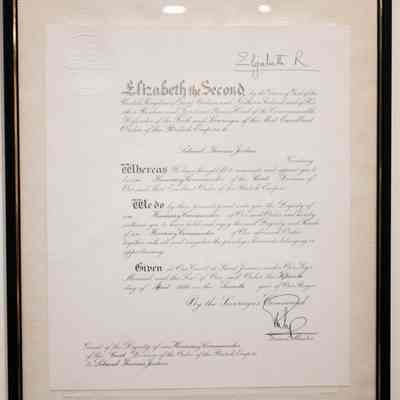 Elizabeth R
Elizabeth the Second, by the Grace of God of the
United Kingdom of Great Britain and Northern Ireland and of Her
other Realms and Territories Queen, Head of the Commonwealth,
Defender of the Faith and Sovereign of the Most Excellent
Order of the British Empire to
Greeting
Whereas We have thought fit to nominate and appoint you to
be an Honorary Commander of the Civil Division of
Our said Most Excellent Order of the British Empire
We do by these presents grant unto you the Dignity of
an Honorary Commander of Our said Order and hereby
authorise you to have hold and enjoy the said Dignity and Rank
of an Honorary Commander of Our aforesaid Order
together with all and singular the privileges thereunto belonging or
appertaining.
Given at Our Court at Saint James's under Our Sign
Manual and the Seal of Our said Order this
day of April in the year of Our Reign
By the Sovereign's Command.
Grant of the Dignity of an Honorary Commander
of the Civil Division of the Order of the British Empire
to